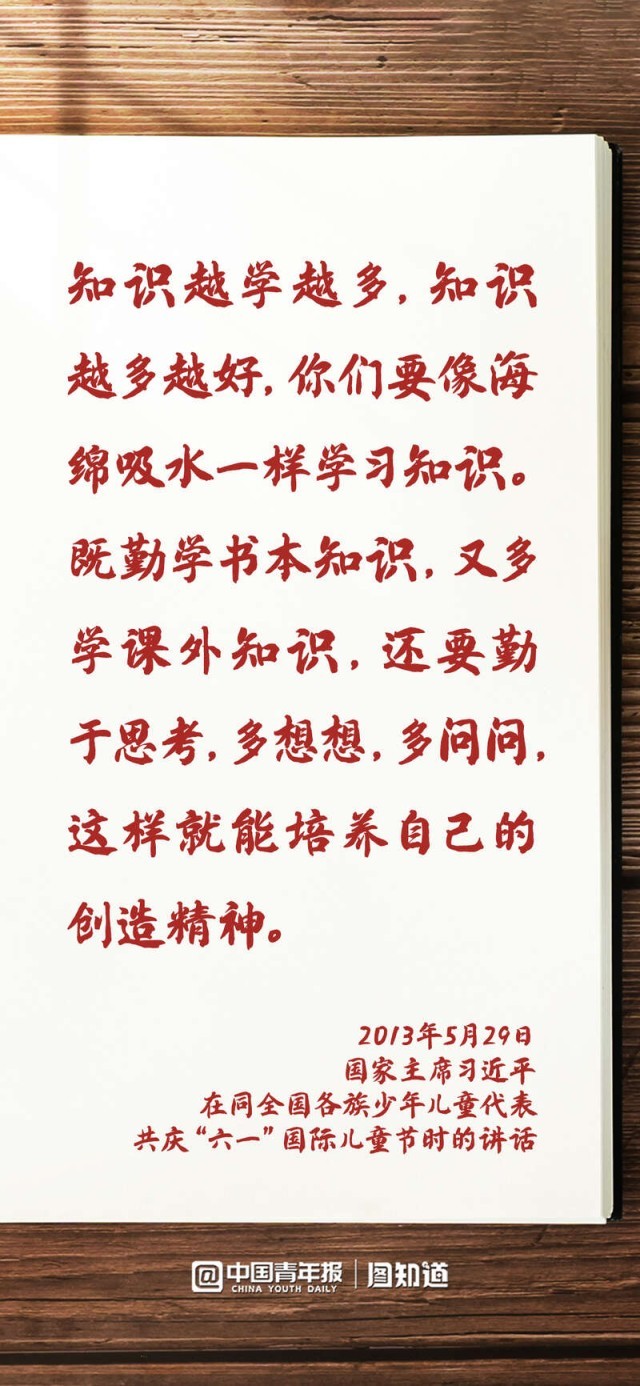 知识越学越多，知识
越多越好，你们要像海
绵吸水一样学习知识。
既勤学书本知识，又多
学课外知识，还要勤
于思考，多想想，多问问，
这样就能培养自己的
创造精神。
2013年5月29日
国家主席习近平
在同全国各族少年儿童代表
共庆“六一”国际儿童节时的讲话
@中国青年报 | 图知道
CHINA YOUTH DAILY